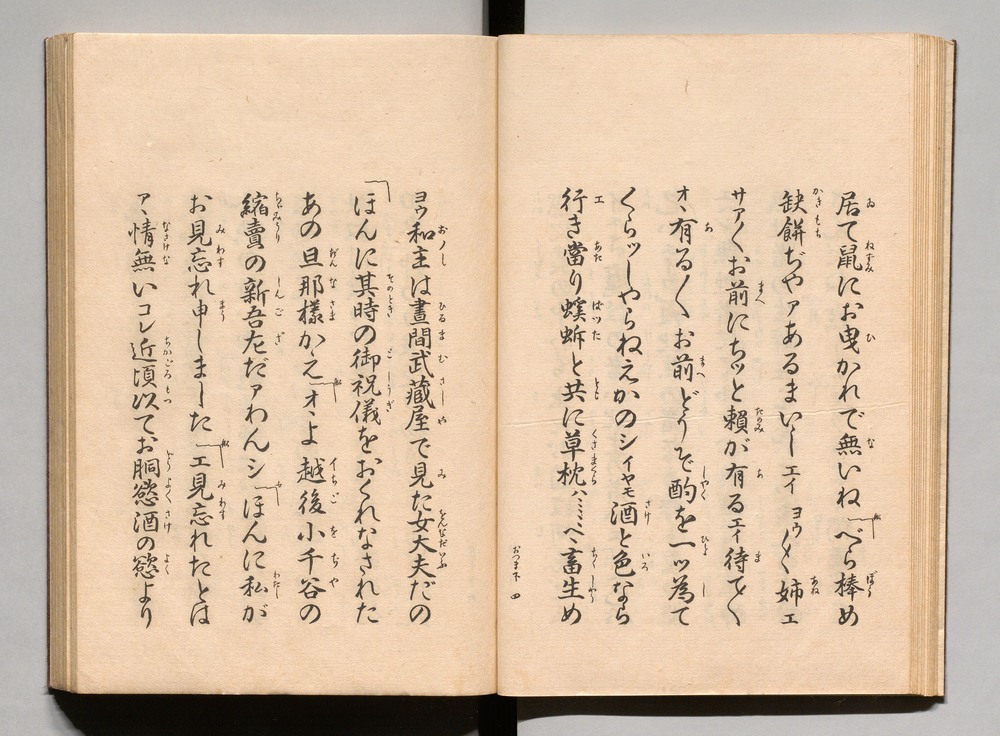 居て鼠にお曳かれで無いね「べら棒め
缺餅ぢやァあるまいしエイヨウ〱姉エ
サア〱お前にちッと頼が有るエイ待て〱
オヽ有る〱お前どうぞ酌を一ッ為て
くらッしやらねえかのシイヤモ酒と色なら
エ行き當り螇蚸と共に草枕ハヽヽヽ畜生め
おつま下 四
ヨウ和主は晝間武藏屋で見た女大夫だの
「ほんに其時の御祝儀をおくれなされた
あの旦那樣かえ「オヽよ越後小千谷の
縮賣の新吾左だァわんシ「ほんに私が
お見忘れ申しました「エ見忘れたとは
アヽ情無いコレ近頃以てお胴慾酒の慾より